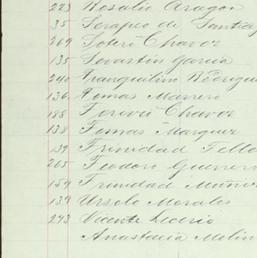 223 Rosalio Aragon
35 Serapio de Santia
269 Sotero Chavez
135 Sevastin Garcia
240 Tranquilino Rodrigue
136 Tomas Marrero
188 Chavez
138 Tomas Marquez
139 Trinidad Tello
265 Teodoro Guerrero
154 Trinidad Muños
137 Ursolo Morales
243 Vicente
Anastacia Molin